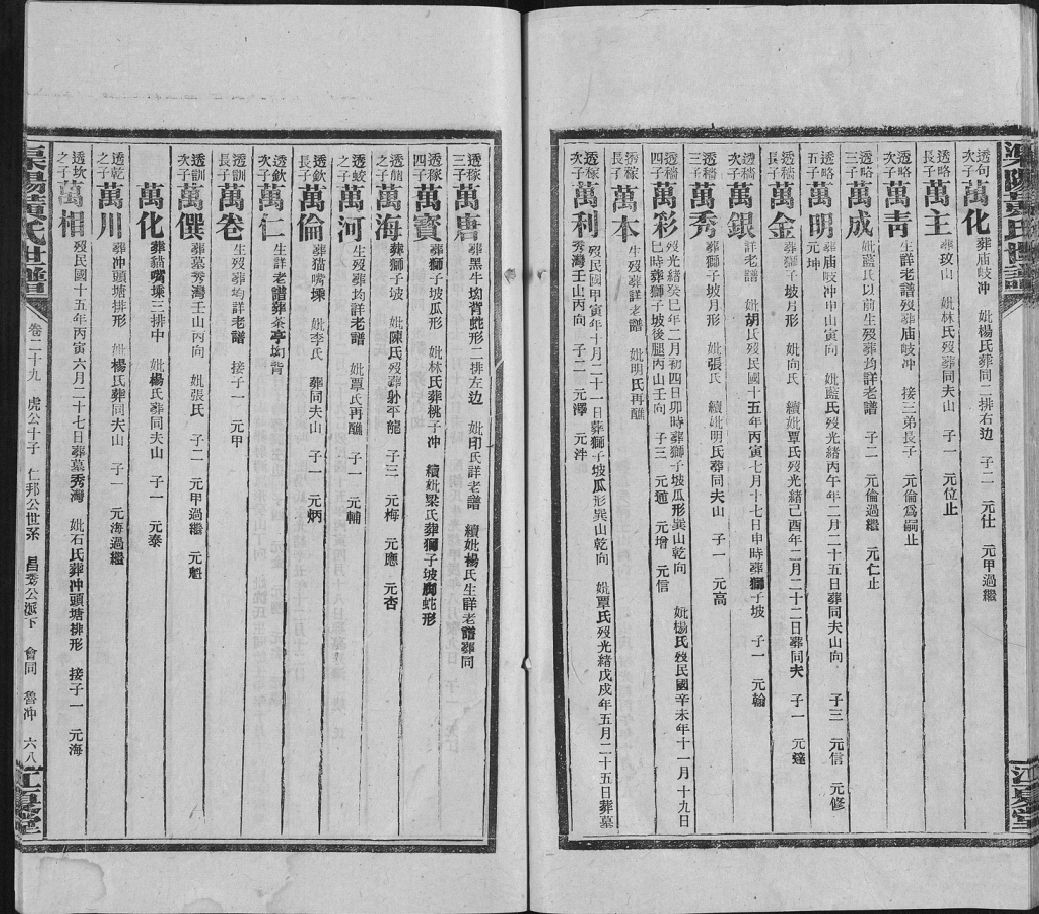 透句次子 萬化 葬庙岐冲 妣楊氏葬同二排右边 子二 元仕 元甲過繼
透略長子 萬主 葬玫山 妣林氏歿葬同夫山 子一 元位止
透略次子 萬青 生詳老譜歿葬庙岐冲 接三弟長子 元倫爲嗣止
透略三子 萬成 妣藍氏以前生歿葬均詳老譜 子二 元倫過繼 元仁止
透略五子 萬明 葬庙岐冲申山寅向 妣藍氏歿光緒丙午年二月二十五日葬同夫山向 子三 元信 元修
元坤
透穡長子 萬金 葬獅子坡月形 妣向氏 續妣覃氏歿光緒己酉年二月二十二日葬同夫 子一 元達
透穡次子 萬銀 詳老譜 妣胡氏歿民國十五年丙寅七月十七日申時葬獅子坡 子一 元翰
透穡三子 萬秀 葬獅子坡月形 妣張氏 續妣明氏葬同夫山 子一 元高
透穡四子 萬彩 歿光緒癸巳年二月初四日卯時葬獅子坡瓜形巽山乾向 妣楊氏歿民國辛未年十一月十九日
巳時葬獅子坡後腿丙山壬向 子三 元 元增 元信
透稼長子 萬本 生歿葬詳老譜 妣明氏再醮
透稼次子 萬利 歿民國甲寅年十月二十一日葬獅子坡瓜形巽山乾向 妣覃氏歿光緒戊戌年五月二十五日葬墓
秀灣壬山丙向 子二 元澤 元沣
透稼三子 萬唐 葬黑牛坳背蛇形二排左边 妣印氏詳老譜 續妣楊氏生詳老譜葬同
透稼四子 萬賓 葬獅子坡瓜形 妣林氏葬桃子冲 續妣梁氏葬獅子坡腳蛇形
之子 萬海 葬獅子坡 妣陳氏歿葬射平龍 子三 元梅 元應 元杏
透蛟之子 萬河 生歿葬均詳老譜 妣覃氏再醮 子一 元輔
透欽長子 萬倫 葬猫嘴堘 妣李氏 葬同夫山 子一 元炳
透欽次子 萬仁 生詳老譜葬茶亭坳背
透訓長子 萬卷 生歿葬均詳老譜 接子一 元甲
透訓次子 萬僎 葬墓秀灣壬山丙向 妣張氏 子二 元甲過繼 元魁
萬化 葬猫嘴堘三排中 妣楊氏葬同夫山 子一 元泰
透乾之子 萬川 葬冲頭塘排形 妣楊氏葬同夫山 子一 元海過繼
透坎之子 萬相 歿民國十五年丙寅六月二十七日葬墓秀灣 妣石氏葬冲頭塘排形 接子一 元海
渠陽黃氏世譜 卷二十九 虎公十子 仁邦公世系 昌秀公派下 會同 魯冲 六八 江夏堂